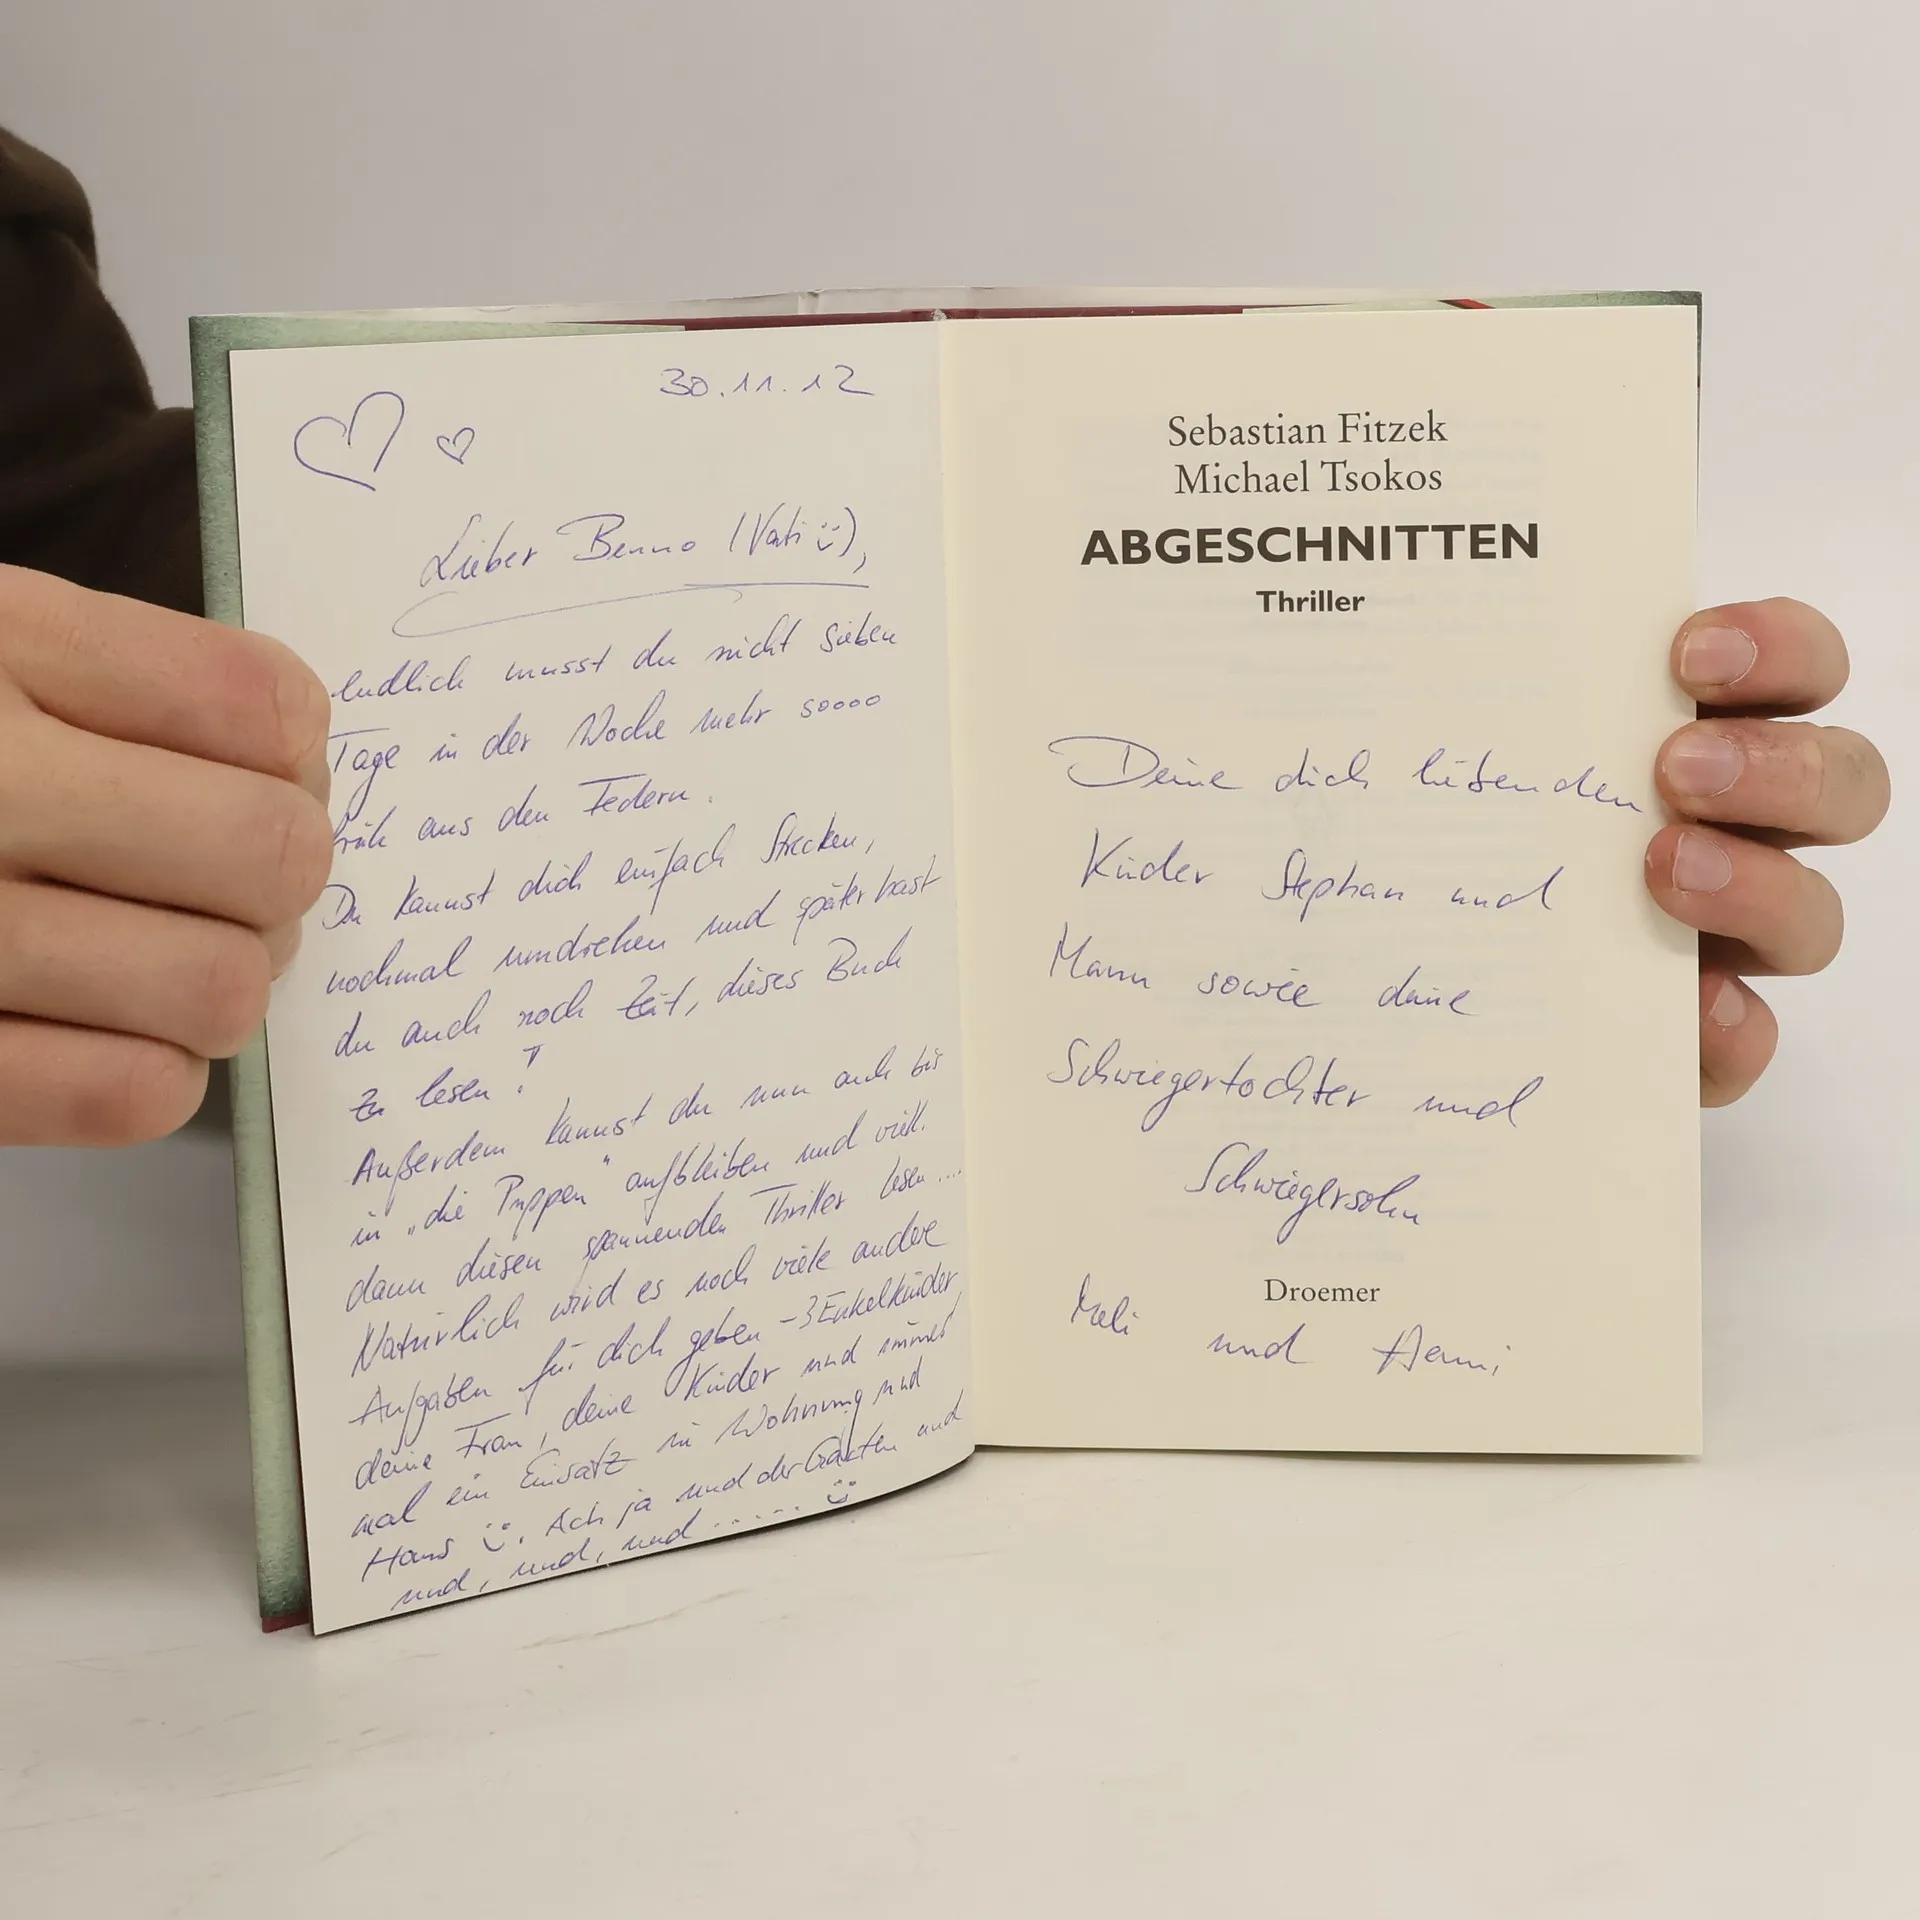 30.11.12
Lieber Benno (Vati ☺),
endlich musst du nicht sieben
Tage in der Woche mehr soooo
früh aus den Federn.
Du kannst dich einfach strecken,
nochmal umdrehen und später hast
du auch noch Zeit, dieses Buch
zu lesen!
Außerdem kannst du nun auch bis
in „die Puppen“ aufbleiben und viell.
dann diesen spannenden Thriller lesen....
Natürlich wird es noch viele andere
Aufgaben für dich geben - 3 Enkelkinder,
deine Frau, deine Kinder und immer
mal ein Einsatz in Wohnung und
Haus ☺. Ach ja und der Garten und
und, und, und ...... ☺
Sebastian Fitzek
Michael Tsokos
ABGESCHNITTEN
Thriller
Deine dich liebenden
Kinder Stephan und
Mann sowie deine
Schwiegertochter und
Schwiegersohn
Droemer
und